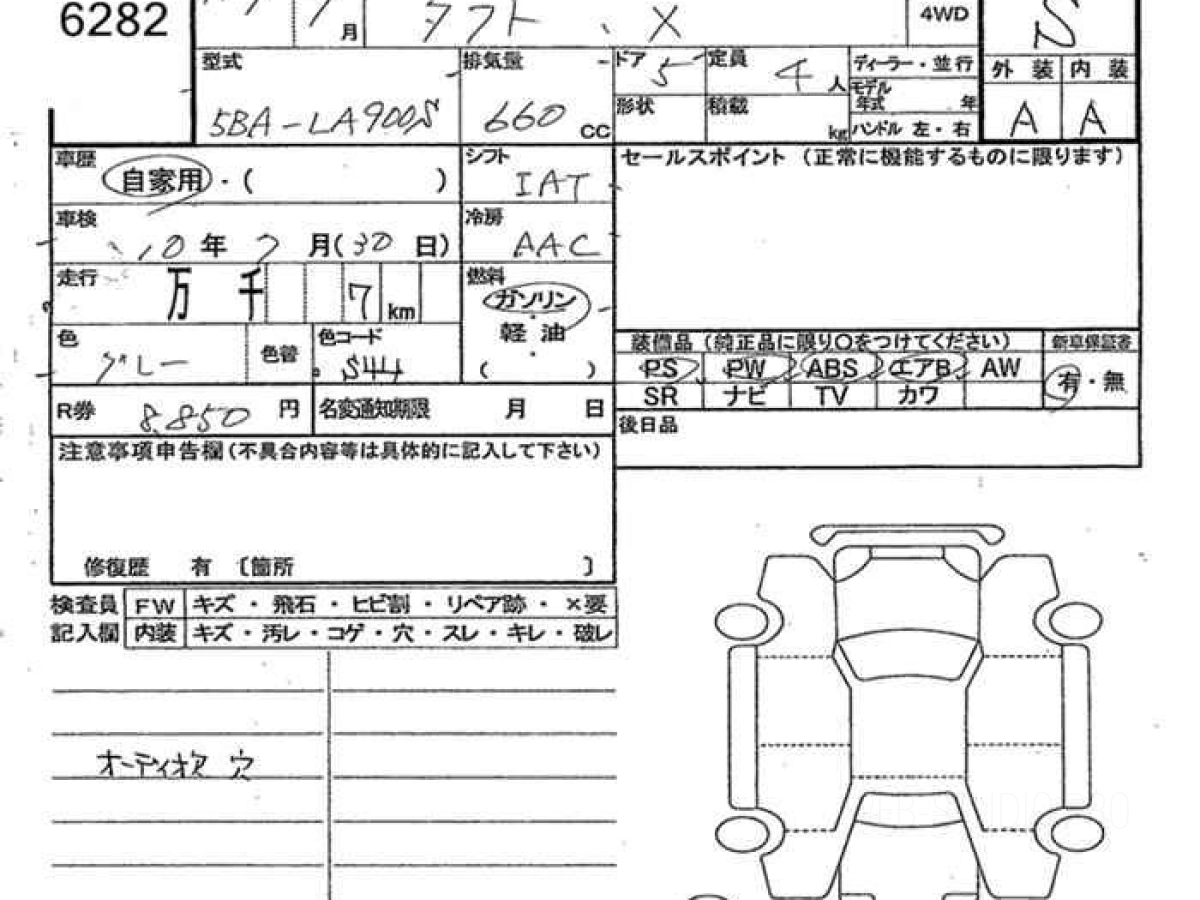 6282
7 月 タフト X 4WD S
型式 5BA-LA900S 排気量 660 CC ドア 5 定員 4 人 ディーラー・並行 外装 内装
形状 積載 kg モデル年式 年 A A
ハンドル 左・右
車歴 自家用・( ) シフト IAT セールスポイント (正常に機能するものに限ります)
車検 10年 7 月(30 日) 冷房 AAC
走行 万 千 7 km 燃料 ガソリン
軽油
( )
色 グレー 色替 色コード S44
装備品 (純正品に限り〇をつけてください) 新車保証書
PS PW ABS エアB AW 有・無
SR ナビ TV カワ
R券 8,850 円 名変通知期限 月 日 後日品
注意事項申告欄(不具合内容等は具体的に記入して下さい)
修復歴 有 〔箇所 〕
検査員 FW キズ・飛石・ヒビ割・リペア跡・×要
記入欄 内装 キズ・汚レ・コゲ・穴・スレ・キレ・破レ
穴